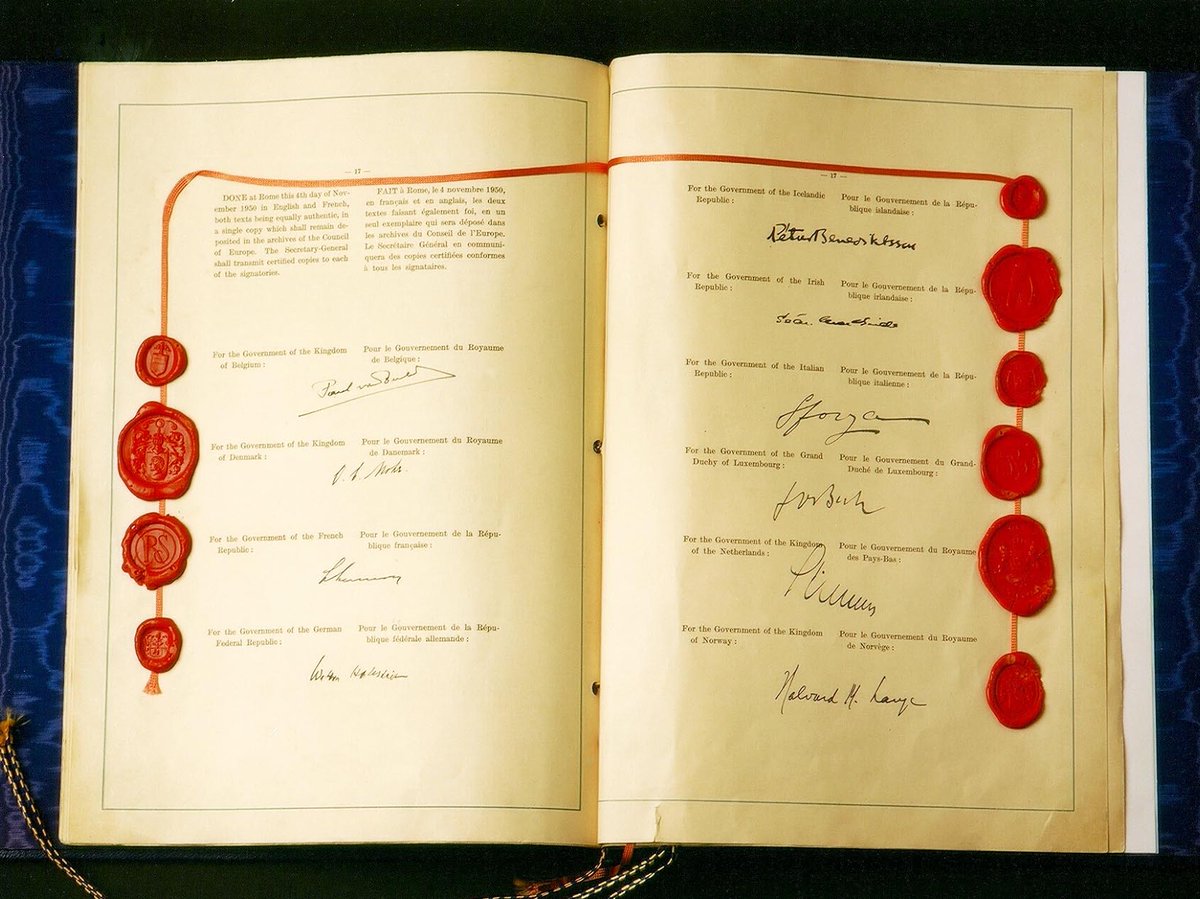 — 17 —
DONE at Rome this 4th day of Nov-
ember 1950 in English and French,
both texts being equally authentic, in
a single copy which shall remain de-
posited in the archives of the Council
of Europe. The Secretary-General
shall transmit certified copies to each
of the signatories.
FAIT à Rome, le 4 novembre 1950,
en français et en anglais, les deux
textes faisant également foi, en un
seul exemplaire qui sera déposé dans
les archives du Conseil de l'Europe.
Le Secrétaire Général en communi-
quera des copies certifiées conformes
à tous les signataires.
For the Government of the Kingdom
of Belgium :
Pour le Gouvernement du Royaume
de Belgique :
Paul van
For the Government of the Kingdom
of Denmark :
Pour le Gouvernement du Royaume
de Danemark :
For the Government of the French
Republic :
Pour le Gouvernement de la Répu-
blique française :
For the Government of the German
Federal Republic :
Pour le Gouvernement de la Répu-
blique fédérale allemande :
RS
— 17 —
For the Government of the Icelandic
Republic :
Pour le Gouvernement de la Répu-
blique islandaise :
Pétur Benediktsson
For the Government of the Irish
Republic :
Pour le Gouvernement de la Répu-
blique irlandaise :
For the Government of the Italian
Republic :
Pour le Gouvernement de la Répu-
blique italienne :
Sforza
For the Government of the Grand
Duchy of Luxembourg :
Pour le Gouvernement du Grand-
Duché de Luxembourg :
For the Government of the Kingdom
of the Netherlands :
Pour le Gouvernement du Royaume
des Pays-Bas :
For the Government of the Kingdom
of Norway :
Pour le Gouvernement du Royaume
de Norvège :
Halvard M. Lange